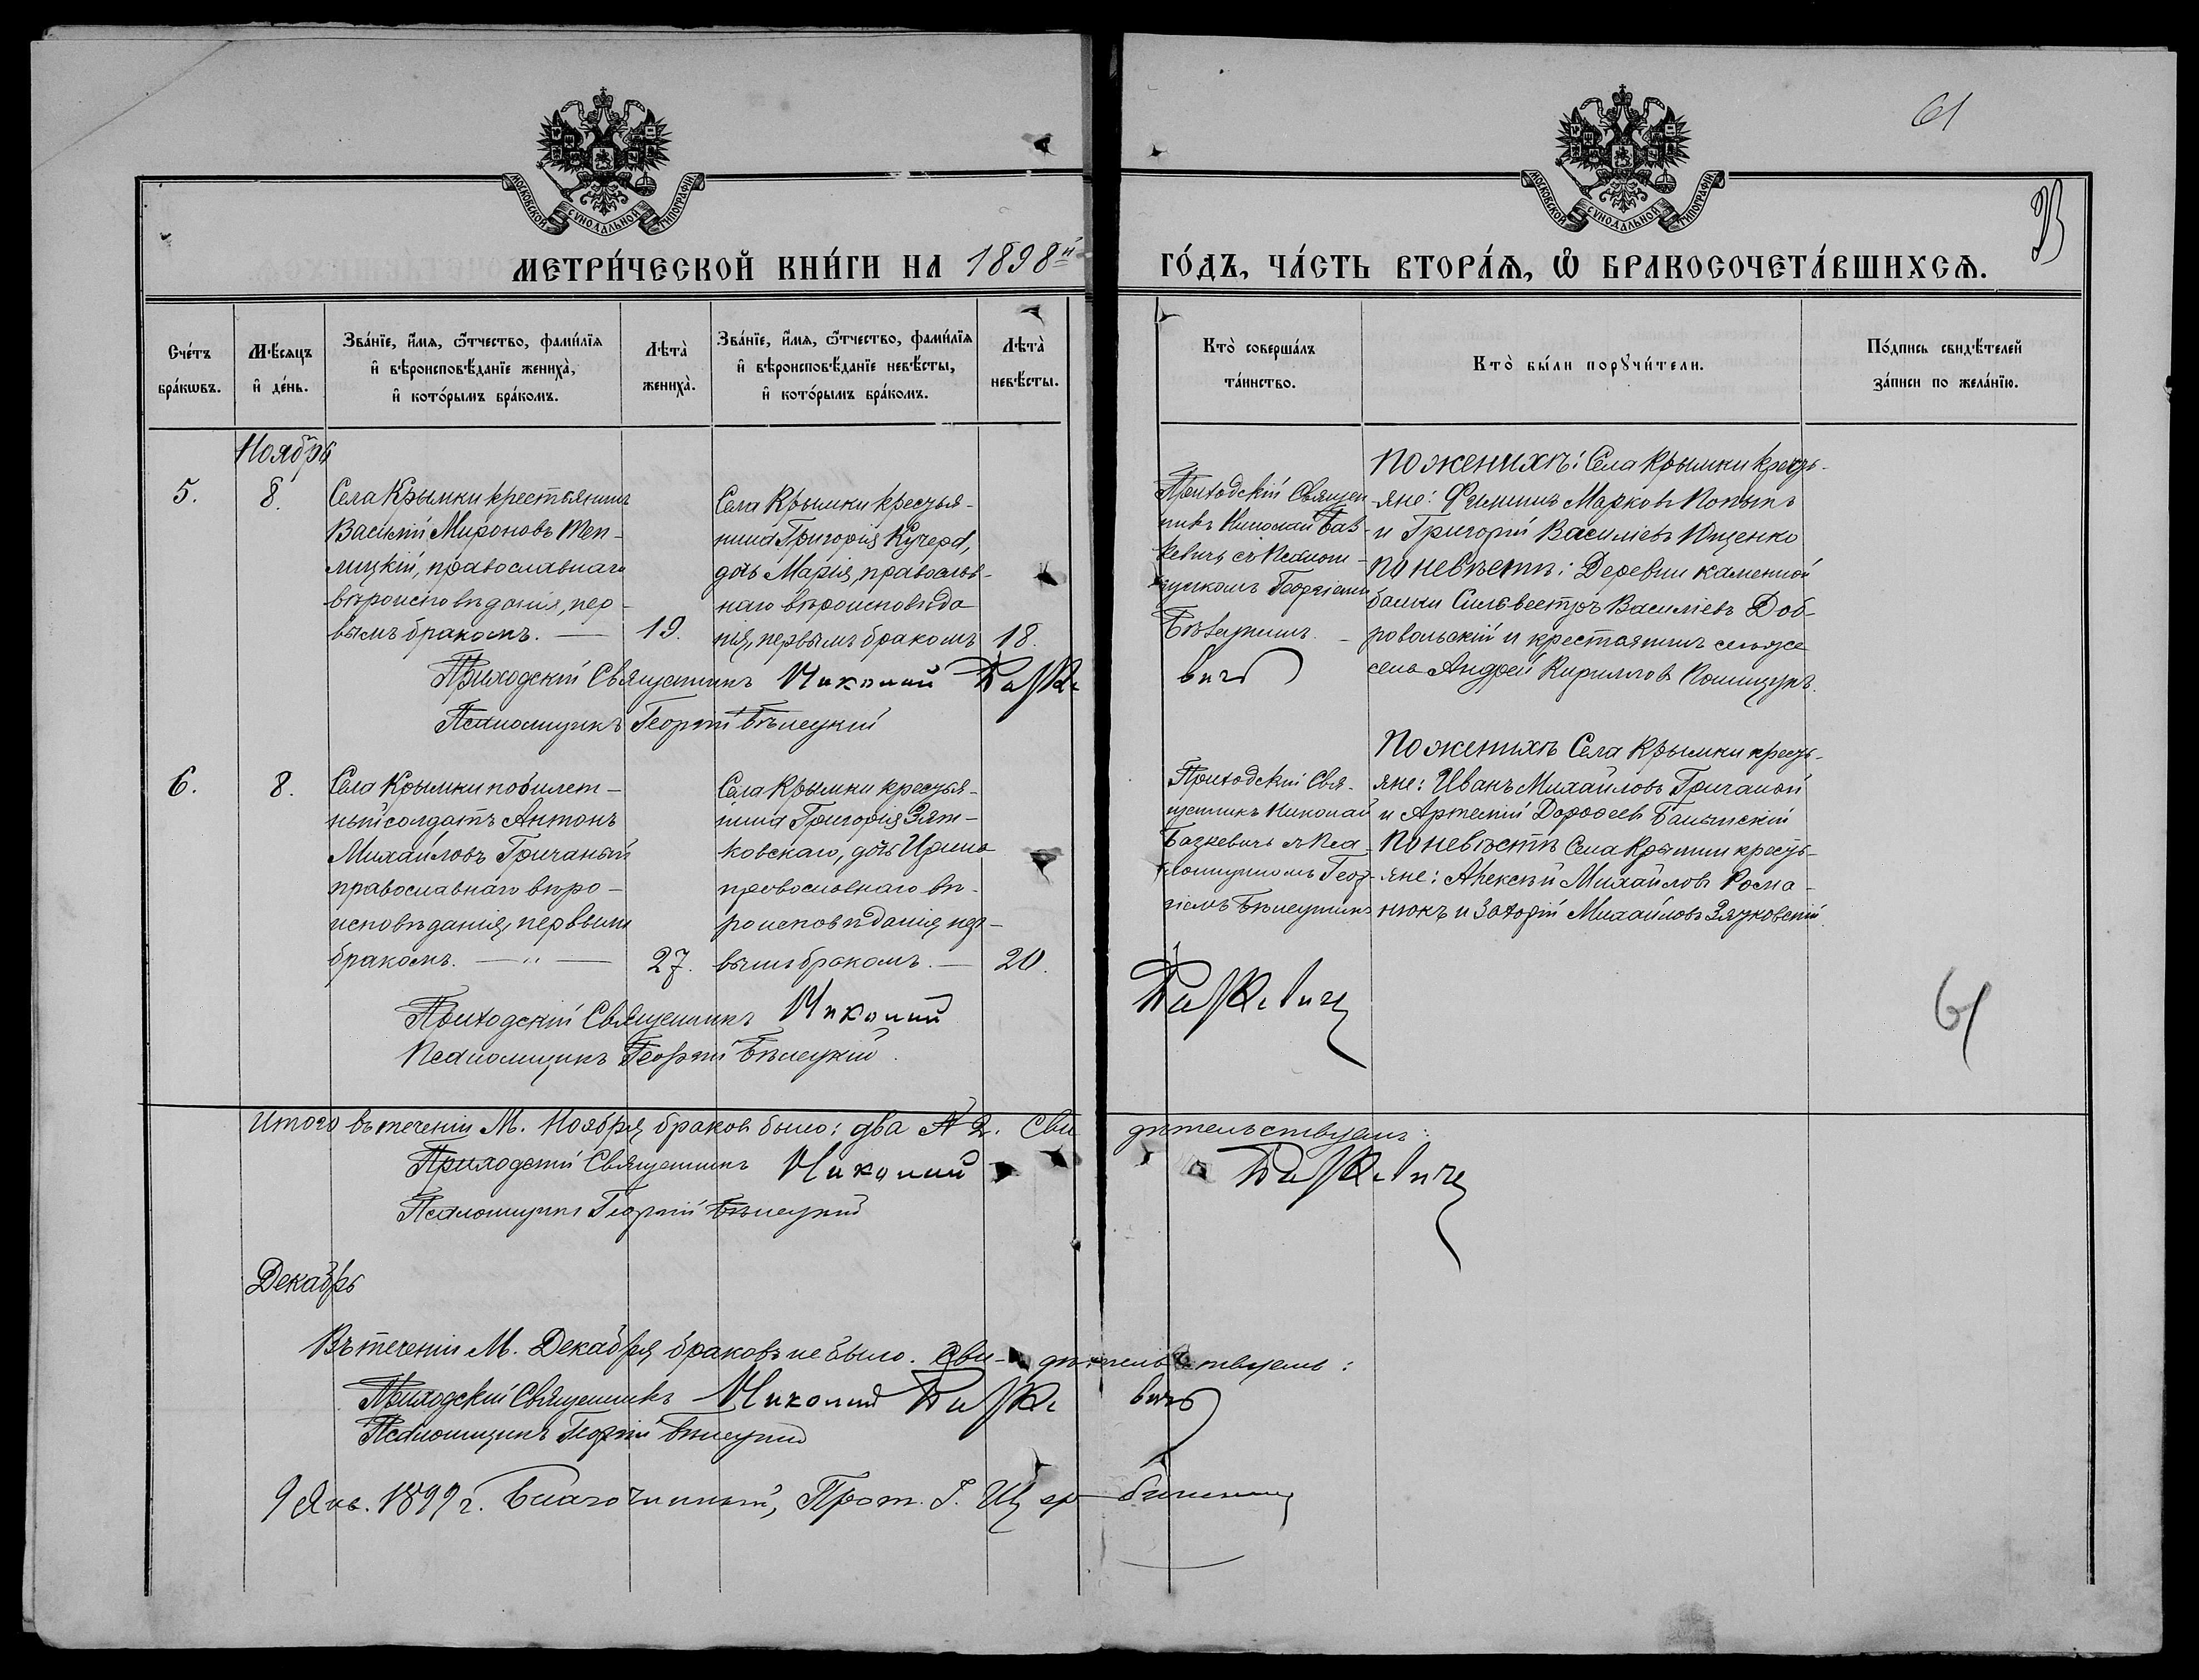 61
МОСКОВСКОЙ СѴНОДАЛЬНОЙ ТИПОГРАФІИ
МОСКОВСКОЙ СѴНОДАЛЬНОЙ ТИПОГРАФІИ
МЕТРИ́ЧЕСКОЙ КНИ́ГИ НА 1898й ГО́ДЪ, ЧА́СТЬ ВТОРА́Ѧ, Ѽ БРАКОСОЧЕТА́ВШИХСѦ.
Сче́тъ бра́кѡвъ.
Мѣ́сяцъ и҆ де́нь.
Зва́нїе, и҆́мѧ, ѻ҆́тчество, фами́лїѧ и҆ вѣроисповѣ́данїе жениха̀, и҆ кото́рымъ бра́комъ.
Лѣта̀ жениха̀.
Зва́нїе, и҆́мѧ, ѻ҆́тчество, фами́лїѧ и҆ вѣроисповѣ́данїе невѣ́сты, и҆ кото́рымъ бра́комъ.
Лѣта̀ невѣ́сты.
Кто̀ соверша́лъ та́инство.
Кто̀ бы́ли порꙋчи́тели.
По́дпись свидѣ́телей за́писи по жела́нїю.
Ноябрь
5.
8.
Села Крымки крестьянинъ
Василій Мироновъ Теп-
лицкій, православнаго
вѣроисповѣданія, пер-
вымъ бракомъ. —
19.
Села Крымки крестья-
нина Григорія Кучера,
дочь Марія, православ-
наго вѣроисповѣда
нія, первымъ бракомъ
18.
Приходскій Священ
никъ Николай Баз-
кевичъ съ Псалом-
щикомъ Георгіемъ
Бѣлецкимъ. –
По женихѣ: Села Крымки кресть-
яне: Марковъ
и Григорій Василіевъ Ищенко
по невѣстѣ: Деревни каменной
балки Сильвестръ Василіевъ Доб-
ровольскій и крестьянинъ
села Андрей Кирилловъ
Приходскій Священникъ Николай Базке
вичъ
Псаломщикъ Георгій Бѣлецкій
6.
8.
Села Крымки побилет-
ный солдатъ Антонъ
Михайловъ Гричаный
православнаго вѣро-
исповѣданія, первымъ
бракомъ. — „ —
27.
Села Крымки крестья-
нина Григорія Зят-
ковскаго, дочь Ирина
православнаго вѣ-
роисповѣданія, пер-
вымъ бракомъ. —
20.
Приходскій Свя-
щенникъ Николай
Базкевичъ съ Пса-
ломщикомъ Геор-
гіемъ Бѣлецкимъ
По женихѣ Села Крымки кресть-
яне: Иванъ Михайловъ Гричаной
и Артемій Дороѳеевъ
По невѣстѣ Села Крымки кресть-
яне: Алексѣй Михайловъ Рома-
нюкъ и Захарій Михайловъ Зятковскій.
Приходскій Священникъ Николай Базкевичъ
Псаломщикъ Георгій Бѣлецкій.
61
Итого въ теченіи М. Ноября браковъ было: два № 2. Сви дѣтельствуемъ:
Приходскій Священникъ Николай Базкевичъ
Псаломщикъ Георгій Бѣлецкій
Декабрь
Въ теченіи М. Декабря браковъ не было. Сви- дѣтельствуемъ:
Приходскій Священникъ Николай Базке вичъ
Псаломщикъ Георгій Бѣлецкій
9 Янв. 1899 г. Благочинный, Прот. І.